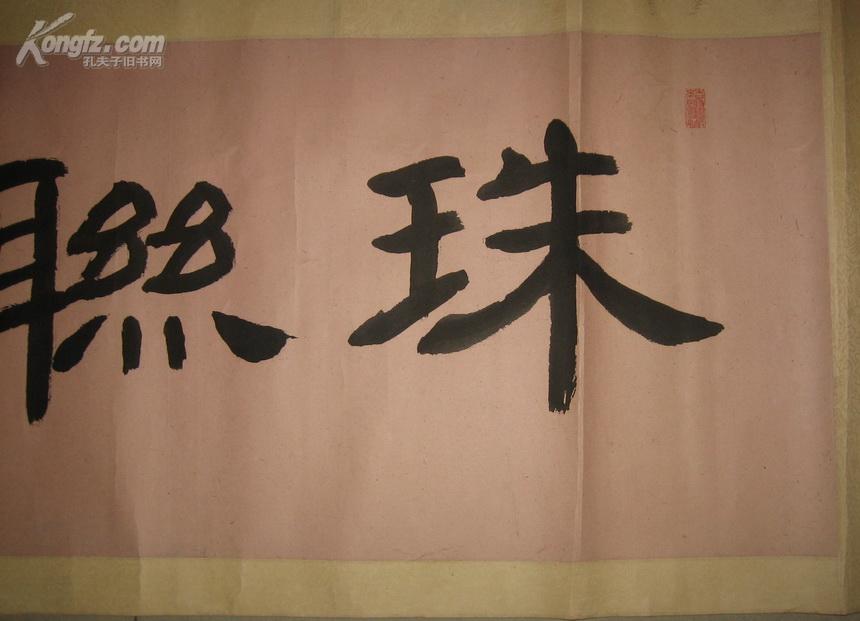 Kongfz.com
孔夫子旧书网
珠聯